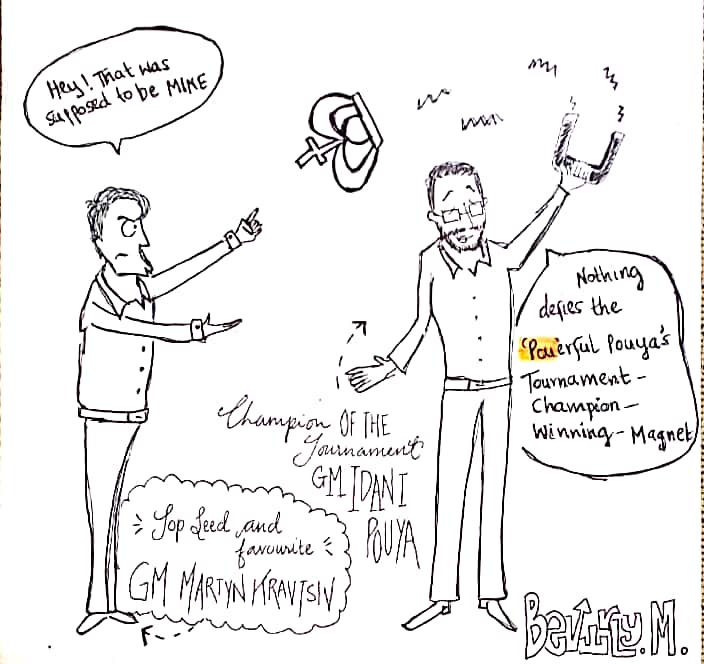 Hey! That was
supposed to be MIKE
Nothing
defies the
'Powerful Pouya's
Tournament-
Champion-
Winning-Magnet
Champion OF THE
Tournament
GM IDANI
POUYA
Top Seed and
favourite
GM MARTYN KRAVTSIV
BEVERLY.M.